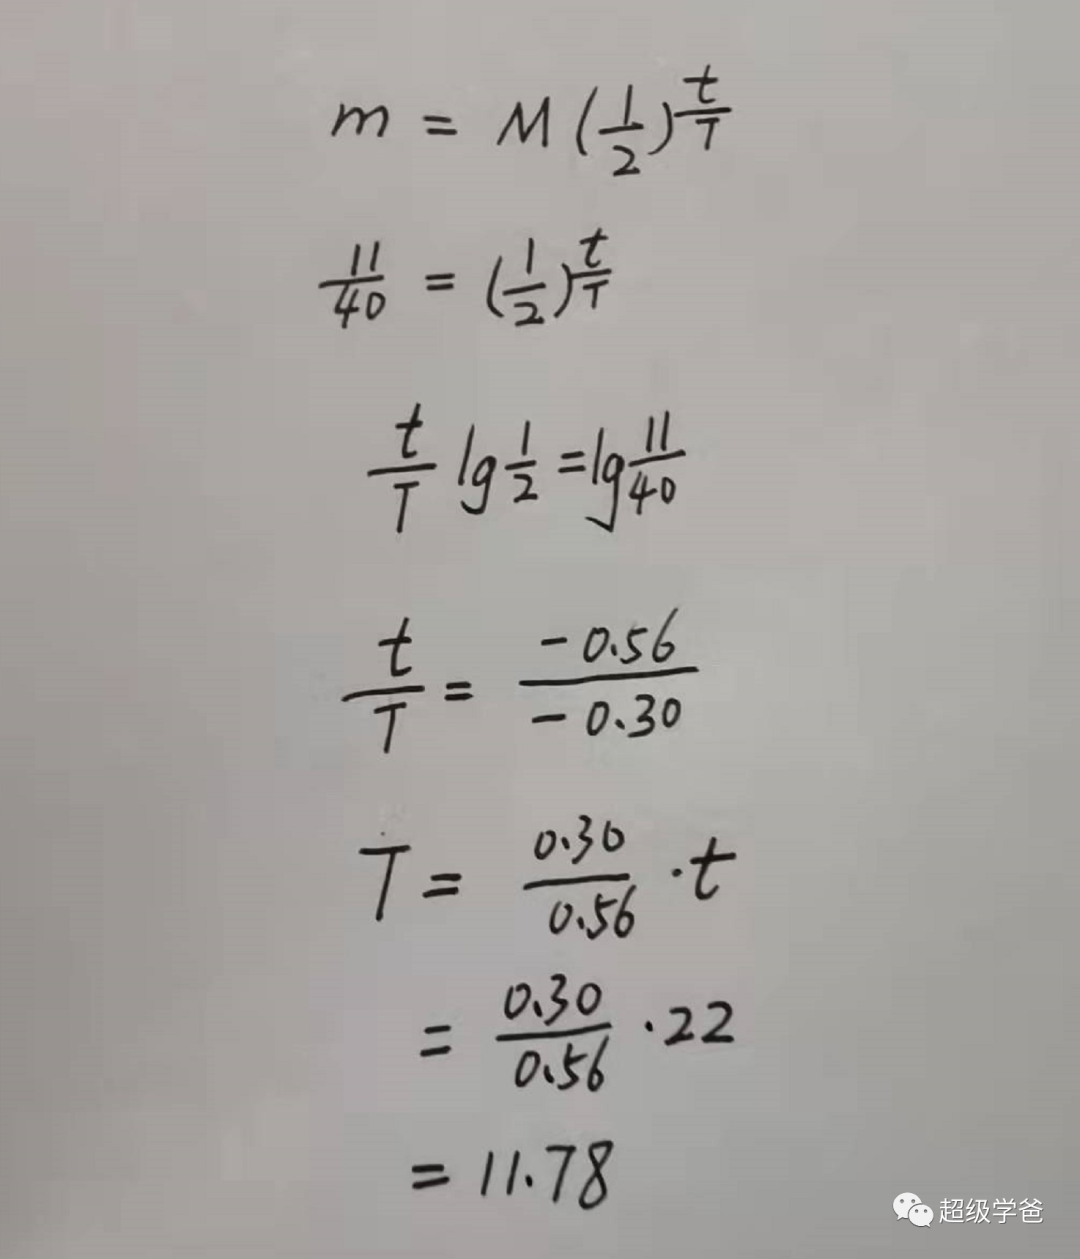 m = M(1/2)^(t/T)
11/40 = (1/2)^(t/T)
t/T lg 1/2 = lg 11/40
t/T = -0.56/-0.30
T = 0.30/0.56 · t
= 0.30/0.56 · 22
= 11.78
超级学爸